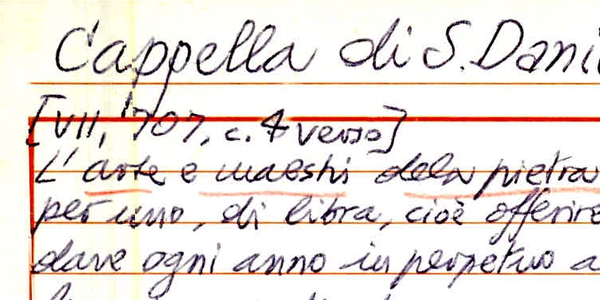 Cappella di S. Dani
[VII, 707, c. 4 verso]
L'arte e maestri dela pietra
per uno, di libra, cioè offerire
dare ogni anno in perpetuo a